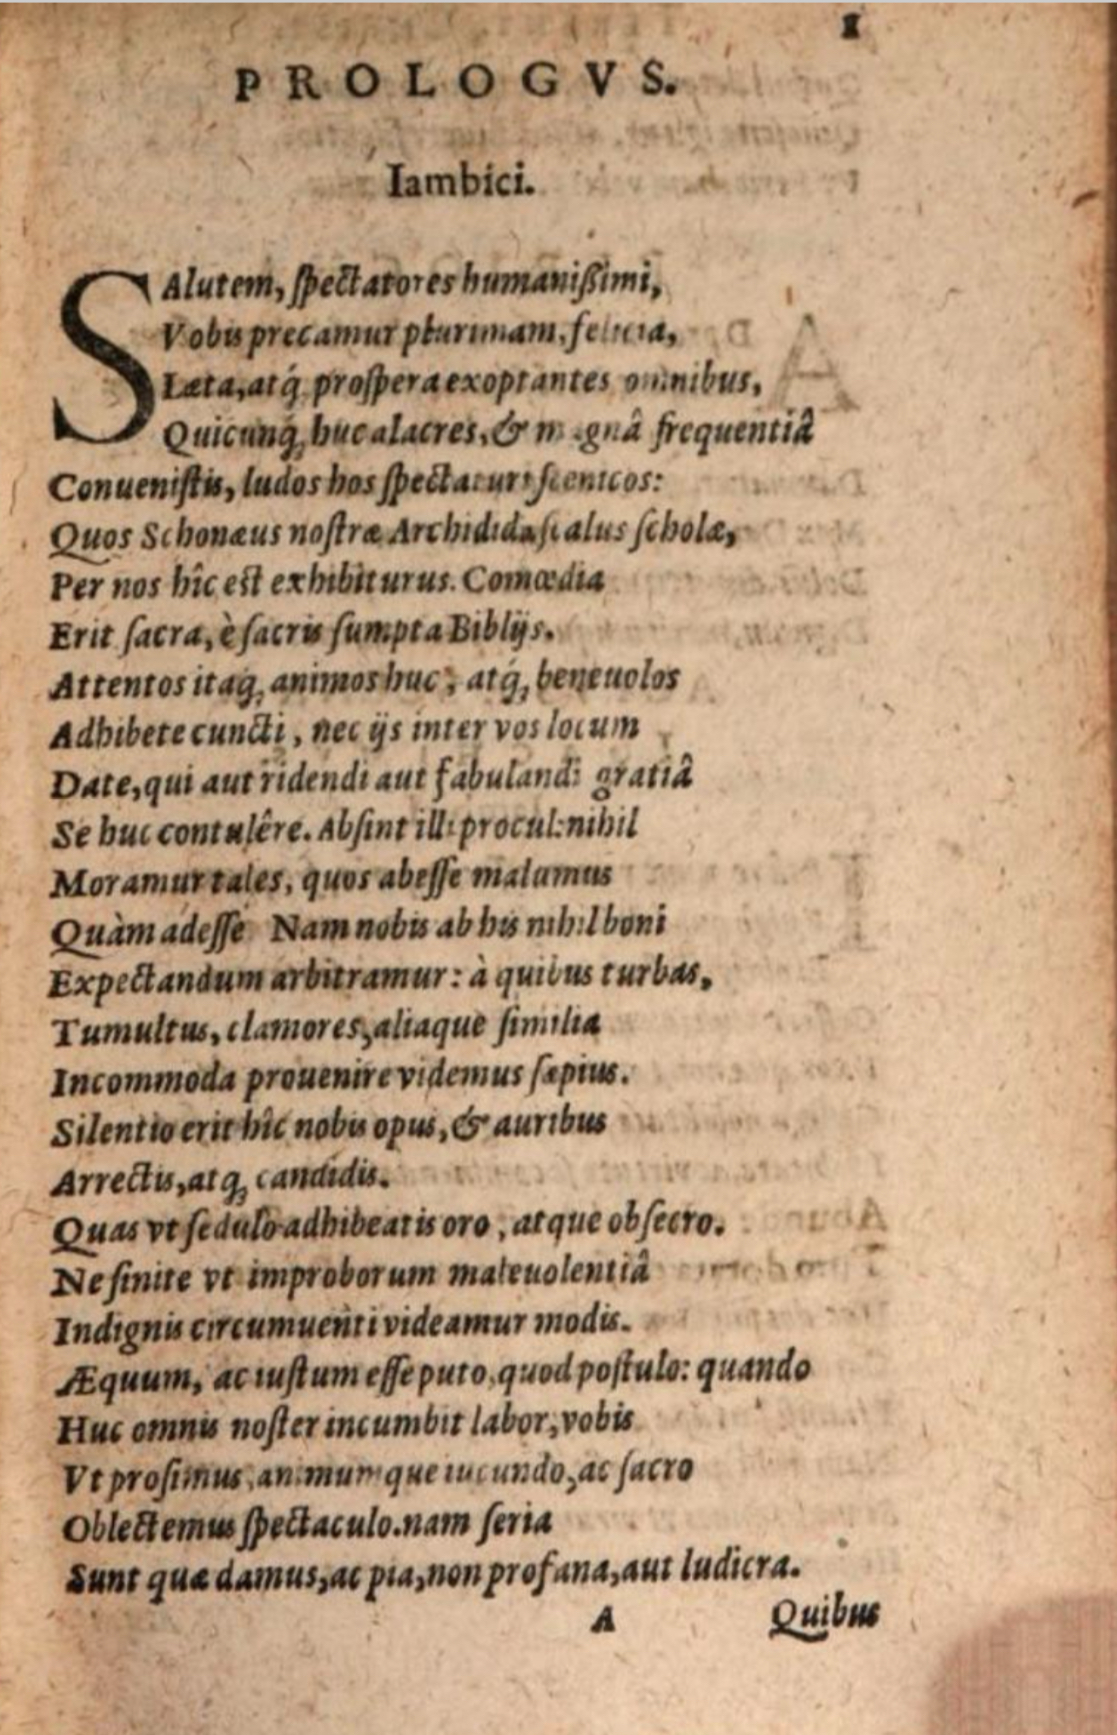 1
PROLOGVS.
Iambici.
SAlutem, ſpectatores humaniſsimi,
Vobis precamur plurimam, felicia,
Læta, atq́; proſpera exoptantes omnibus,
Quicunq; huc alacres, & magnâ frequentiâ
Conueniſtis, ludos hos ſpectaturi ſcenicos:
Quos Schonæus noſtræ Archididaſcalus ſcholæ,
Per nos hîc eſt exhibiturus. Comœdia
Erit ſacra, è ſacris ſumpta Biblijs.
Attentos itaq; animos huc, atq́; beneuolos
Adhibete cuncti, nec ijs inter vos locum
Date, qui aut ridendi aut fabulandi gratiâ
Se huc contulêre. Abſint illi procul: nihil
Moramur tales, quos abeſſe malumus
Quàm adeſſe Nam nobis ab his nihil boni
Expectandum arbitramur: à quibus turbas,
Tumultus, clamores, aliaque ſimilia
Incommoda prouenire videmus ſæpius.
Silentio erit hîc nobis opus, & auribus
Arrectis, atq; candidis.
Quas vt ſedulò adhibeatis oro, atque obſecro.
Ne ſinite vt improborum maleuolentiâ
Indignis circumuenti videamur modis.
Æquum, ac iuſtum eſſe puto, quod poſtulo: quando
Huc omnis noſter incumbit labor, vobis
Vt proſimus, animumque iucundo, ac ſacro
Oblectemus ſpectaculo. nam ſeria
Sunt quæ damus, ac pia, non profana, aut ludicra.
A Quibus